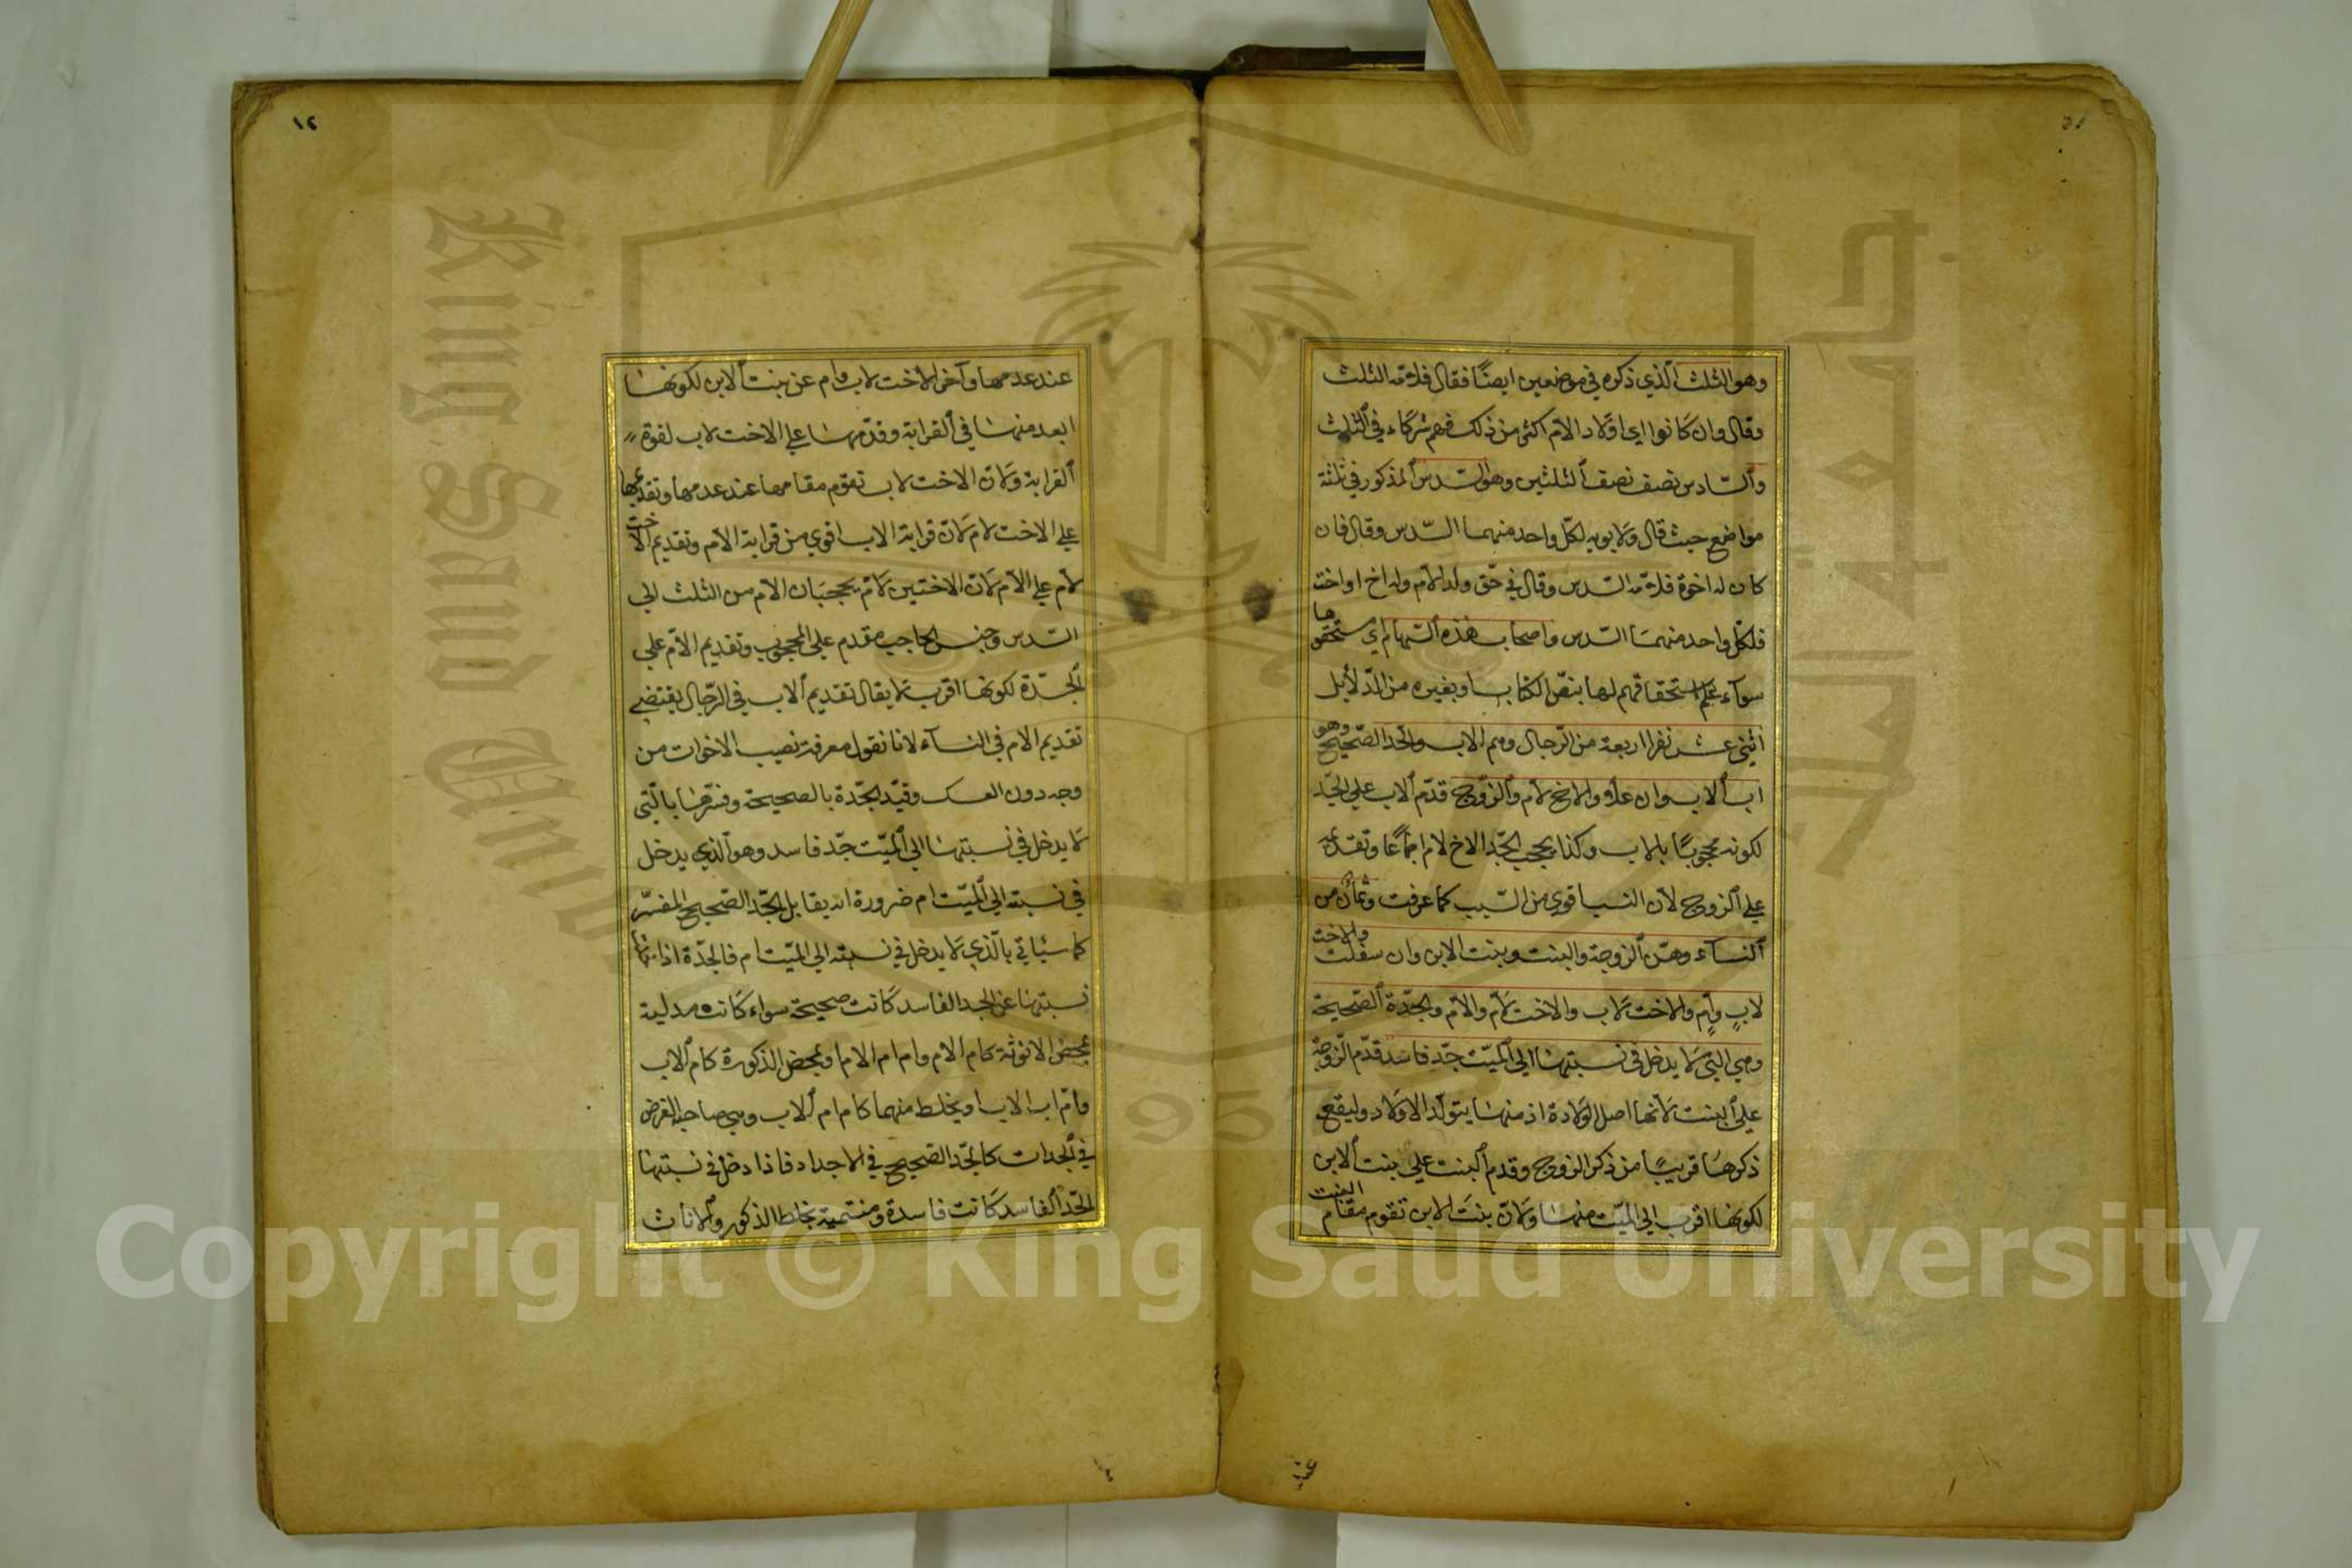 وهو الثلث الذي ذكره في موضعين ايضًا فقال فلامّه الثلث
وقال وان كانوا اي اولاد الامّ اكثر من ذلك فهم شركاء في الثلث
والسّادس نصف نصف الثلثين وهو السّدس المذكور في ثلثة
مواضع حيث قال ولابويه لكلّ واحد منهما السّدس وقال فان
كان له اخوة فلامّه السّدس وقال في حقّ ولد الامّ وله اخ او اخت
فلكلّ واحد منهما السّدس واصحاب هذه السّهام اي مستحقوها
سوآء علم استحقاقهم لها بنصّ الكتاب او بغيره من الدّلائل
اثني عشر نفرا اربعة من الرّجال وهم الاب والجدّ الصّحيح وهو
اب الاب وان علا والاخ لام والزّوج قدّم الاب علي الجدّ
لكونه محجوبًا بالاب وكذا يحجب الجدّ الاخ لام اجماعًا وتقديمه
علي الزوج لان النسب اقوي من السّبب كما عرفت وثمان من
النسآء وهنّ الزوجة والبنت وبنت الابن وان سفلت والاخت
لابٍ وامٍ والاخت لاب والاخت لامّ والامّ والجدّة الصّحيحة
وهي التي لا يدخل في نسبتها الي الميّت جدّ فاسد قدّم الزوجة
علي البنت لانها اصل الولادة اذ منها يتولّد الاولاد وليقع
ذكرها قريبًا من ذكر الزوج وقدم البنت علي بنت الابن
لكونها اقرب الي الميّت منها ولانّ بنت الابن تقوم مقام البنت
عند
١٢
عند عدمها وآخر الاخت لاب وام عن بنت الابن لكونها
ابعد منها في القرابة وقدّمها علي الاخت لاب لقوة
القرابة ولانّ الاخت لاب تقوم مقامها عند عدمها وتقديمها
علي الاخت لام لانّ قرابة الاب اقوي من قرابة الامّ وتقديم الاخت
لام علي الامّ لانّ الاختين لامّ يحجبان الامّ من الثلث الي
السّدس وجنس الحاجب مقدم علي المحجوب وتقديم الامّ علي
الجدّة لكونها اقرب لا يقال تقديم الاب في الرّجال يقتضي
تقديم الام في النسآء لانا نقول معرفة نصيب الاخوات من
وجه دون العكس وقيّد الجدّة بالصحيحة وفسّرها بالّتي
لا يدخل في نسبتها الي الميّت جدّ فاسد وهو الذي يدخل
في نسبته الي الميّت ام ضرورة انه يقابل الجدّ الصّحيح المفسّر
كما سيأتي بالّذي لا يدخل في نسبته الي الميّت ام فالجدّة اذا
نسبتها عن الجد الفاسد كانت صحيحة سواء كانت مدلية
بمحض الانوثة كام الام وام ام الام او بمحض الذكورة كام الاب
وامّ اب الاب او بخلط منهما كام ام الاب وهي صاحبة الفرض
في الجدات كالجدّ الصّحيح في الاجداد فاذا دخل في نسبتها
الجدّ الفاسد كانت فاسدة ومنتمية بخلط الذكور والاناث
King Saud University
جامعة الملك سعود
1957
Copyright © King Saud University